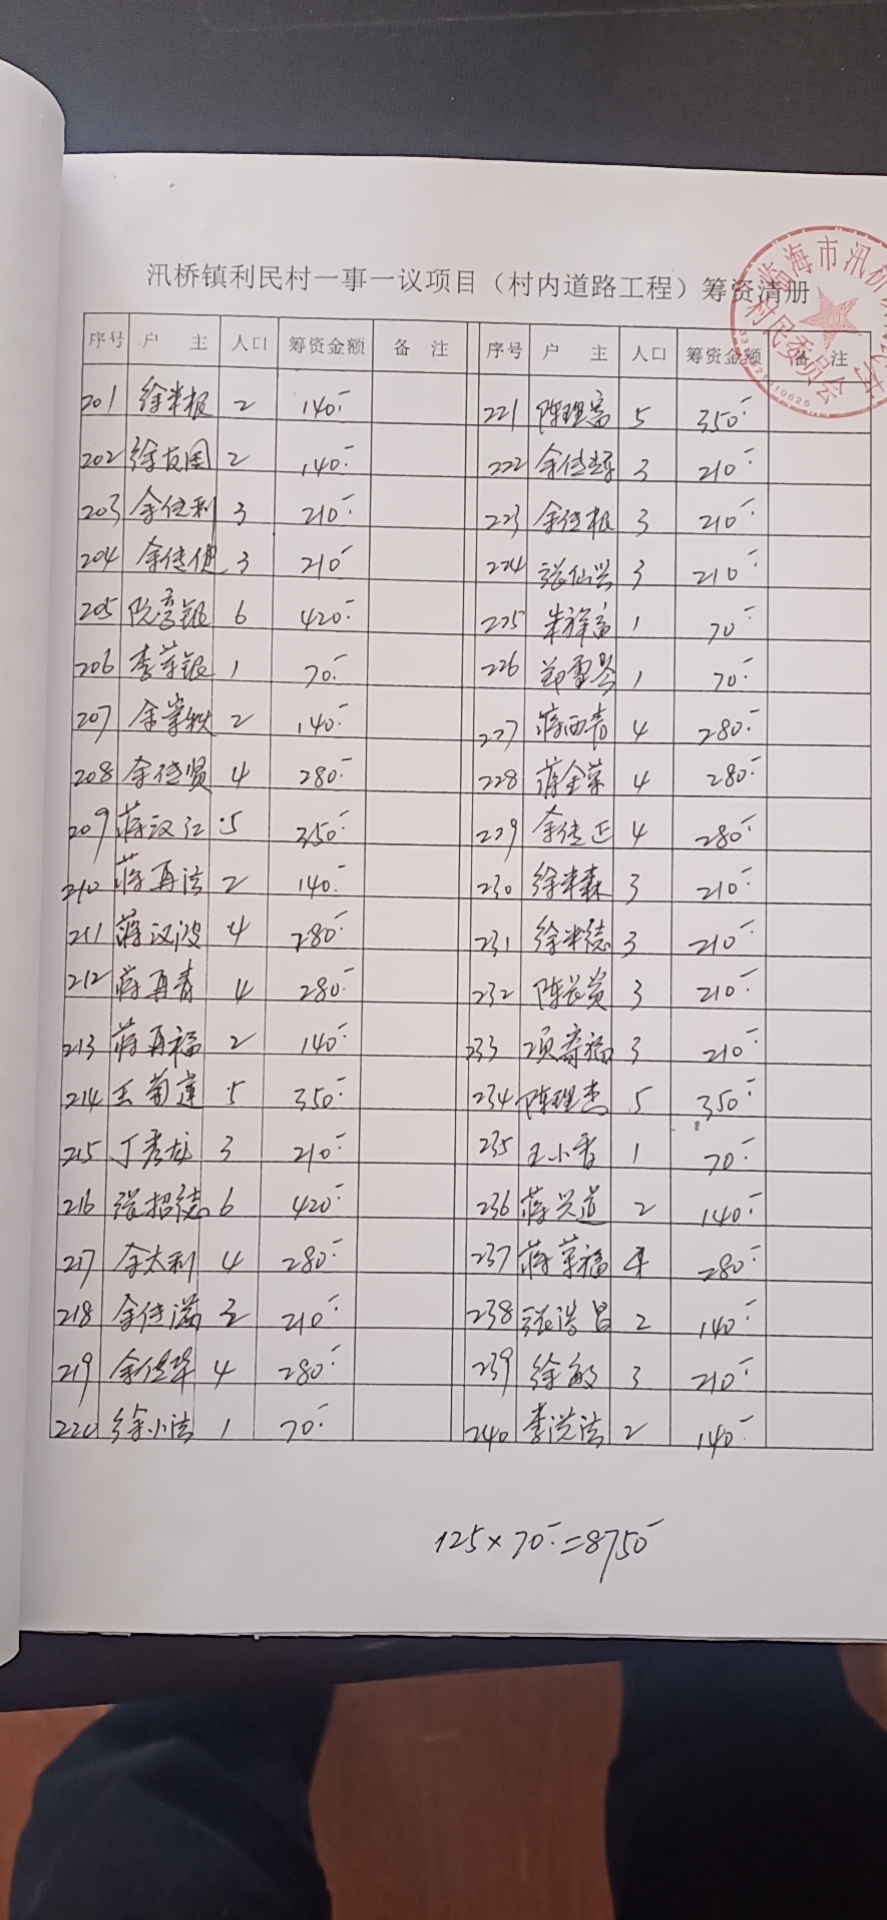 汛桥镇利民村一事一议项目（村内道路工程）筹资清册
临海市汛桥 村民委员会
序号 户 主 人口 筹资金额 备 注 序号 户 主 人口 筹资金额 备 注
201 徐米根 2 140.- 221 陈理富 5 350.-
202 徐友国 2 140.- 222 余佳 3 210.-
203 余佳利 3 210.- 223 余佳根 3 210.-
204 余佳 3 210.- 224 张仙兴 3 210.-
205 阮 银 6 420.- 225 朱祥富 1 70.-
206 李 银 1 70.- 226 郑 1 70.-
207 余 2 140.- 227 蒋西青 4 280.-
208 余佳贤 4 280.- 228 蒋金荣 4 280.-
209 蒋汉江 5 350.- 229 余佳正 4 280.-
210 蒋再法 2 140.- 230 徐米森 3 210.-
211 蒋汉波 4 280.- 231 徐米德 3 210.-
212 蒋再青 4 280.- 232 陈 3 210.-
213 蒋再福 2 140.- 233 项 福 3 210.-
214 王菊莲 5 350.- 234 陈理杰 5 350.-
215 丁秀 3 210.- 235 王小香 1 70.-
216 张招德 6 420.- 236 蒋兴道 2 140.-
217 余太利 4 280.- 237 蒋 福 4 280.-
218 余佳满 3 210.- 238 张 昌 2 140.-
219 余佳华 4 280.- 239 徐敏 3 210.-
220 徐小法 1 70.- 240 李 法 2 140.-
125×70.-=8750.-